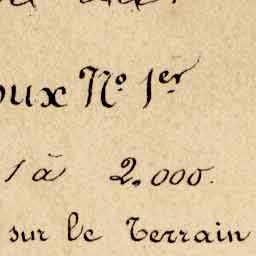 oux N.º 1er
1 à 2.000.
sur le Terrain